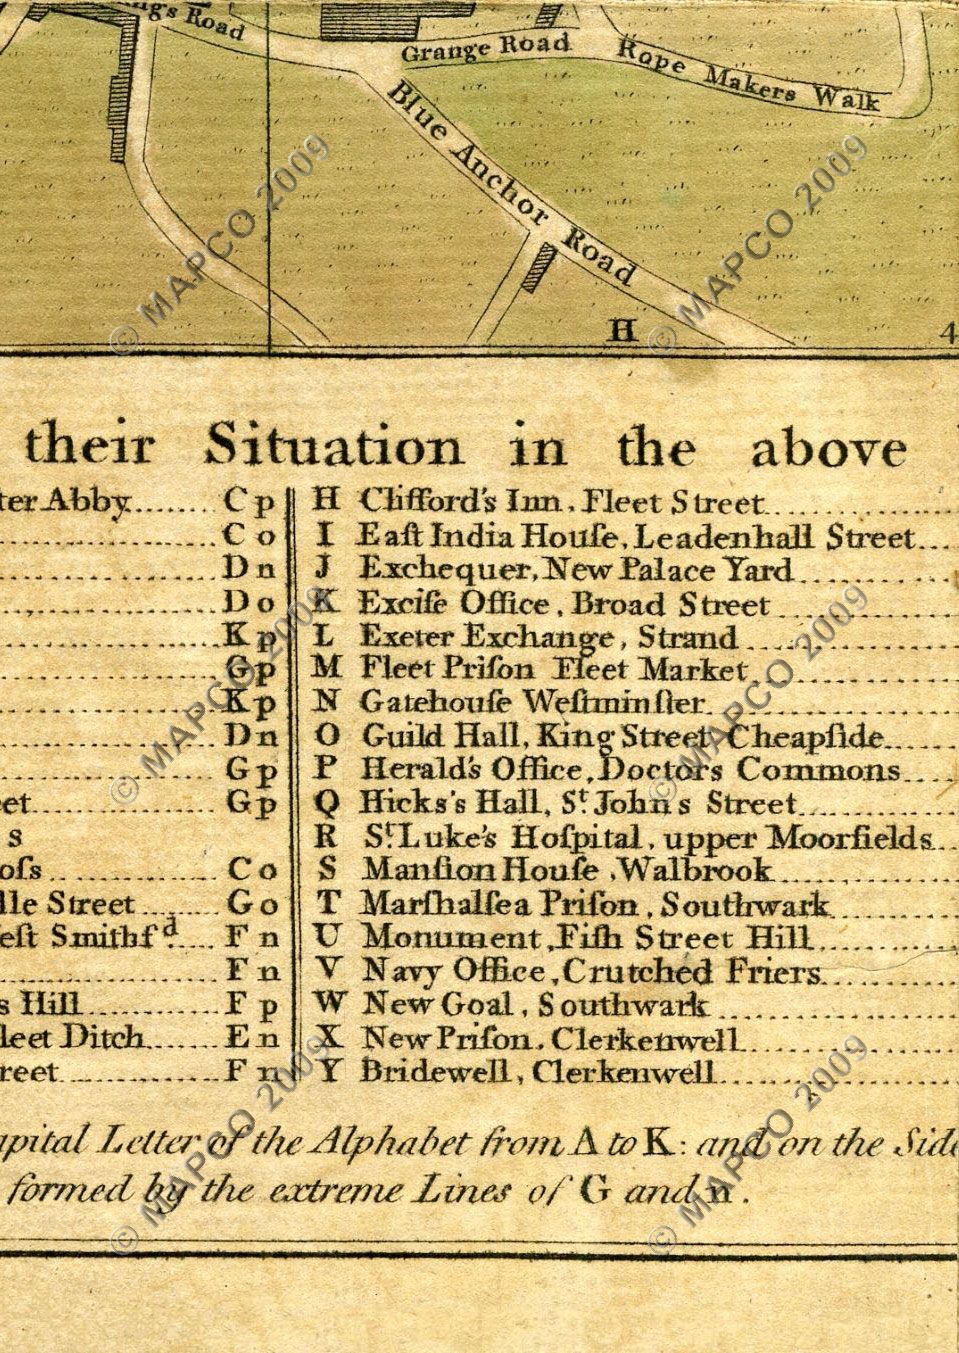 ng's Road
Grange Road
Rope Makers Walk
Blue Anchor Road
H
4
their Situation in the above
ter Abby........ C p
C o
D n
D o
K p
G p
K p
D n
G p
eet........ G p
s
oſs........ C o
lle Street........ G o
eſt Smithfd........ F n
F n
s Hill........ F p
leet Ditch........ E n
reet........ F n
H Clifford's Inn, Fleet Street
I Eaſt India Houſe, Leadenhall Street
J Exchequer, New Palace Yard
K Exciſe Office, Broad Street
L Exeter Exchange, Strand
M Fleet Priſon Fleet Market
N Gatehouſe Weſtminſter
O Guild Hall, King Street Cheapſide
P Herald's Office, Doctors Commons
Q Hicks's Hall, St. Johns Street
R St. Luke's Hoſpital, upper Moorfields
S Manſion Houſe, Walbrook
T Marſhalſea Priſon, Southwark
U Monument, Fiſh Street Hill
V Navy Office, Crutched Friers
W New Goal, Southwark
X New Priſon, Clerkenwell
Y Bridewell, Clerkenwell
apital Letter of the Alphabet from A to K: and on the Side
formed by the extreme Lines of G and n.
© MAPCO 2009
© MAPCO 2009
© MAPCO 2009
© MAPCO 2009
© MAPCO 2009
© MAPCO 2009